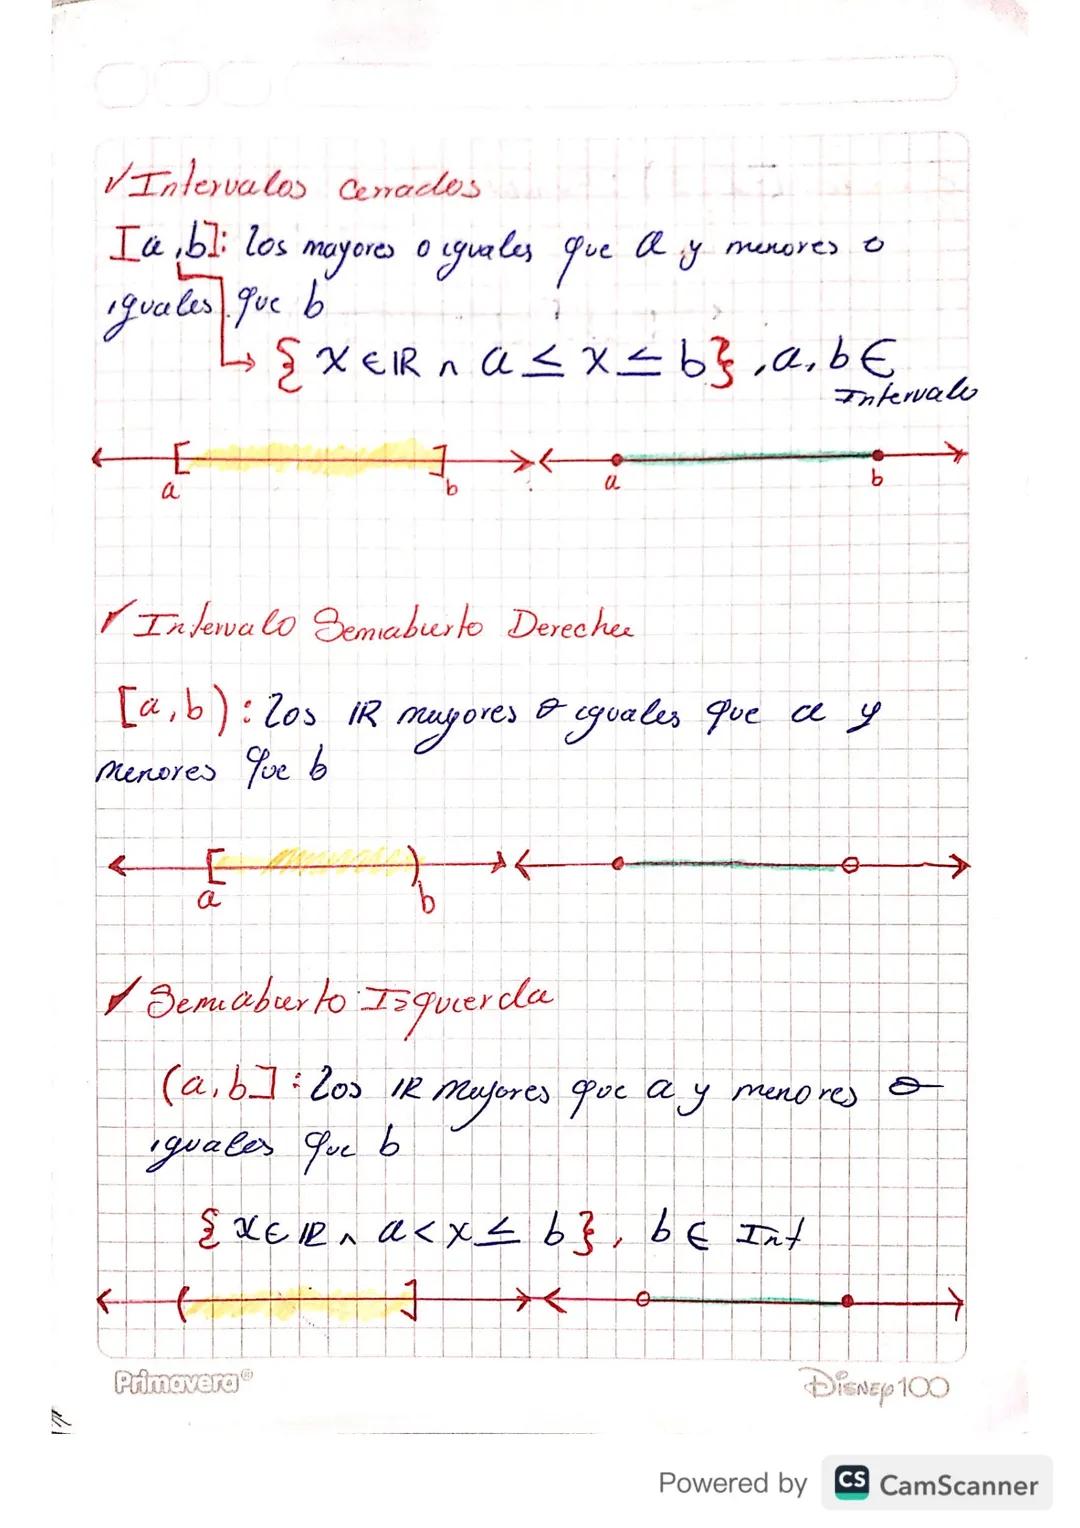 ✓ Intervalos Cerrados
[a,b]: los mayores o iguales que a y menores o
iguales que b
→ { x ∈ IR ∧ a ≤ x ≤ b }, a, b ∈
Intervalo
a b a b
✓ Intervalo Semiabierto Derecha
[a,b): Los IR mayores o iguales que a y
menores que b
a b
✓ Semiabierto Izquierda
(a,b]: Los IR Mayores que a y menores o
iguales que b
{ x ∈ IR ∧ a < x ≤ b }, b ∈ Int
Primavera®
Disney 100
Powered by CS CamScanner